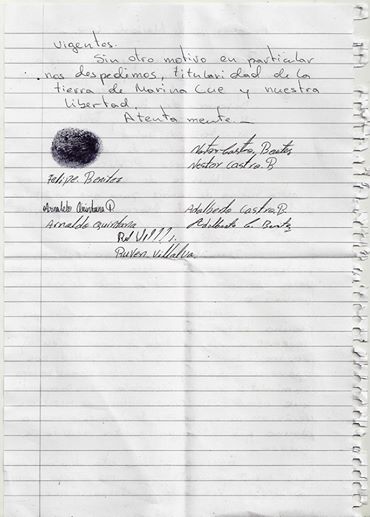 vigentes.
Sin otro motivo en particular
nos despedimos, titularidad de la
tierra de Marina Cue y nuestra
libertad.
Atentamente.-
Nestor Castro, Benites
Nestor Castro. B
Felipe. Benites
Arnaldo Quintana Adalberto Castro. B.
Arnaldo Quintana Adalberto C. Benitez
Ruven. Villalva.